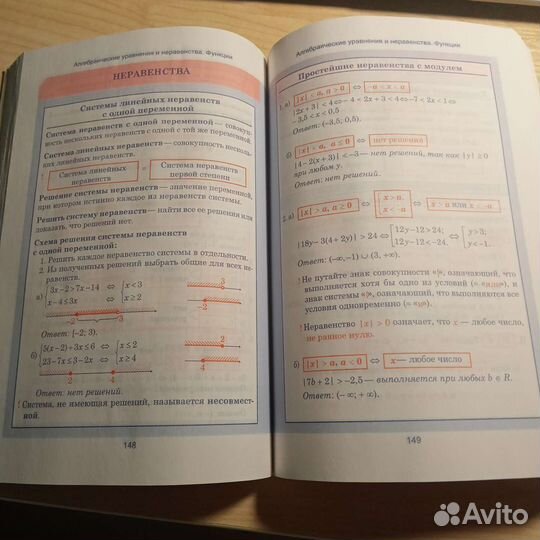 Алгебраические уравнения и неравенства. Функции
НЕРАВЕНСТВА
Системы линейных неравенств
с одной переменной
Система неравенств с одной переменной — совокуп-
ность нескольких неравенств с одной и той же переменной.
Система линейных неравенств — совокупность несколь-
ких линейных неравенств.
! Система линейных неравенств = Система неравенств первой степени
Решение системы неравенств — значение переменной,
при котором истинно каждое из неравенств системы.
Решить систему неравенств — найти все ее решения или
доказать, что решений нет.
Схема решения системы неравенств
с одной переменной:
1. Решить каждое неравенство системы в отдельности.
2. Из полученных решений выбрать общие для всех не-
равенств.
а) {3x−2>7x−14 ⇔ {x<3
x−4≤3x x≥2
−2 3
Ответ: [−2; 3).
б) {5(x−2)+3x≤6 ⇔ {x≤2
23−7x≤3−2x x≥4
2 4
Ответ: нет решений.
! Система, не имеющая решений, называется несовмест-
ной.
148
Алгебраические уравнения и неравенства. Функции
Простейшие неравенства с модулем
1. а) |x| < a, a > 0 ⇔ −a < x < a
|2x + 3| < 4 ⇔ −4 < 2x + 3 < 4 ⇔ −7 < 2x < 1 ⇔
−3,5 < x < 0,5
Ответ: (−3,5; 0,5).
б) |x| < a, a ≤ 0 ⇔ нет решений
|4 − 2(x + 3)| < −3 — нет решений, так как |y| ≥ 0
при любом y.
Ответ: нет решений.
2. а) |x| > a, a ≥ 0 ⇔ [x > a, x < −a ⇔ x > a или x < −a
|18y − 3(4 + 2y)| > 24 ⇔ [12y − 12 > 24; ⇔ [y > 3;
12y − 12 < −24. y < −1.
Ответ: (−∞, −1) ∪ (3, +∞).
! Не путайте знак совокупности «[», означающий, что
выполняется хотя бы одно из условий (= «или»), и
знак системы «{», означающий, что выполняются все
условия одновременно (= «и»).
! Неравенство |x| > 0 означает, что x — любое число,
не равное нулю.
б) |x| > a, a < 0 ⇔ x — любое число
|7b + 2| > −2,5 — выполняется при любых b ∈ R.
Ответ: (−∞; +∞).
149
Avito